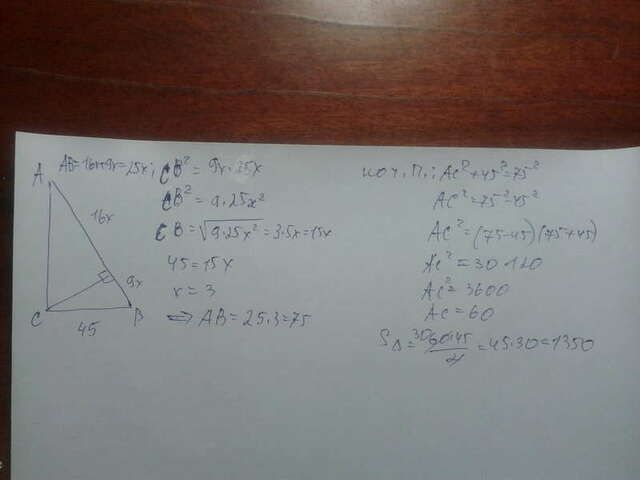 A
AB=16x+9x=25x;
16x
9x
C
B
45
CB²=9x·25x
CB²=9·25x²
CB=√9·25x²=3·5x=15x
45=15x
x=3
⇒AB=25·3=75
по т.П.: AC²+45²=75²
AC²=75²-45²
AC²=(75-45)(75+45)
AC²=30·120
AC²=3600
AC=60
S△=³⁰60·45/2=45·30=1350